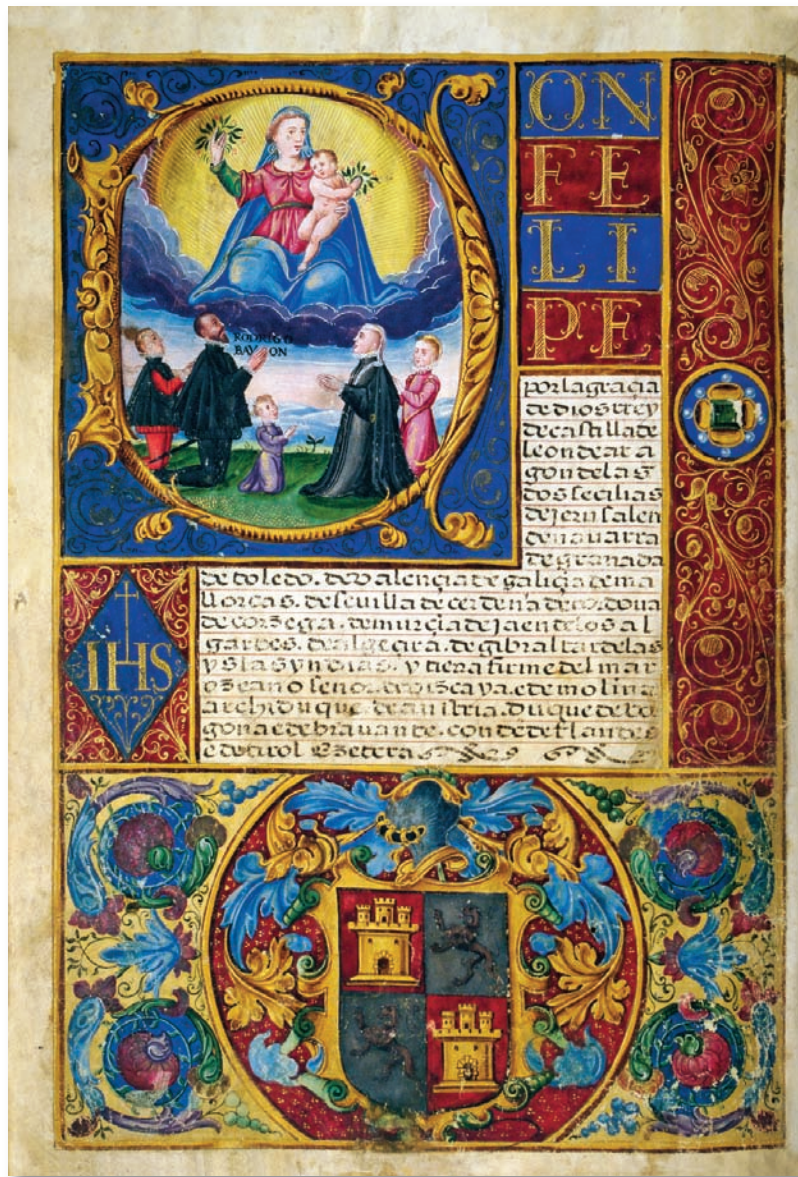 ON
FE
LI
PE
RODRIGO
BAYON
por la graçia
de dios rrey
de castilla de
leon de ara
gon de las
dos secilias
de jerusalen
de nauarra
de granada
de toledo. de valençia de galiçia de ma
llorcas. de seuilla de cerdeña de cordoua
de corsega. de murçia de jaen de los al
garbes. de algecira. de gibraltar de las
yslas yndias. y tierra firme del mar
oçeano señor. de vizcaya. e de molina
archiduque. de austria. duque de bor
gona e de brauante. conde de flandes
e de tirol etzetera
IHS